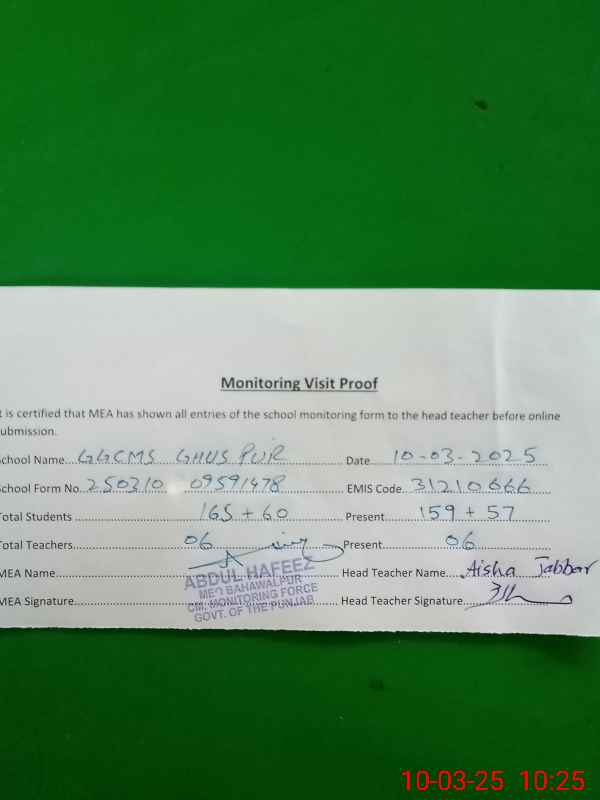 Monitoring Visit Proof
t is certified that MEA has shown all entries of the school monitoring form to the head teacher before online
ubmission.
School Name GGCMS GHUS PUR Date 10-03-2025
School Form No. 250310 09591478 EMIS Code. 31210666
Total Students 165 + 60 Present 159 + 57
Total Teachers 06 Present 06
MEA Name Head Teacher Name Aisha Jabbar
MEA Signature Head Teacher Signature
ABDUL HAFEEZ
MEO BAHAWALPUR
CM. MONITORING FORCE
GOVT. OF THE PUNJAB
10-03-25 10:25